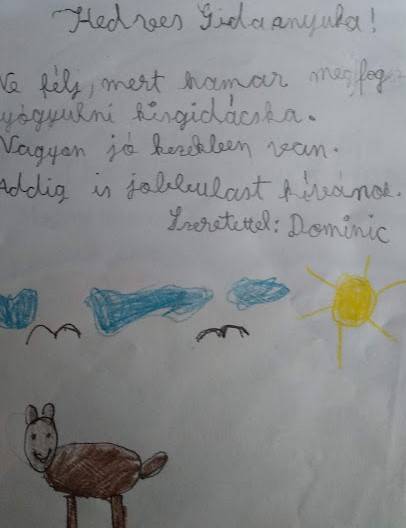 Kedves Gidaanyuka!
Ne félj, mert hamar megfog
gyógyulni kisgidácska.
Nagyon jó kezekben van.
Addig is jobbulást kívánok.
Szeretettel: Dominic